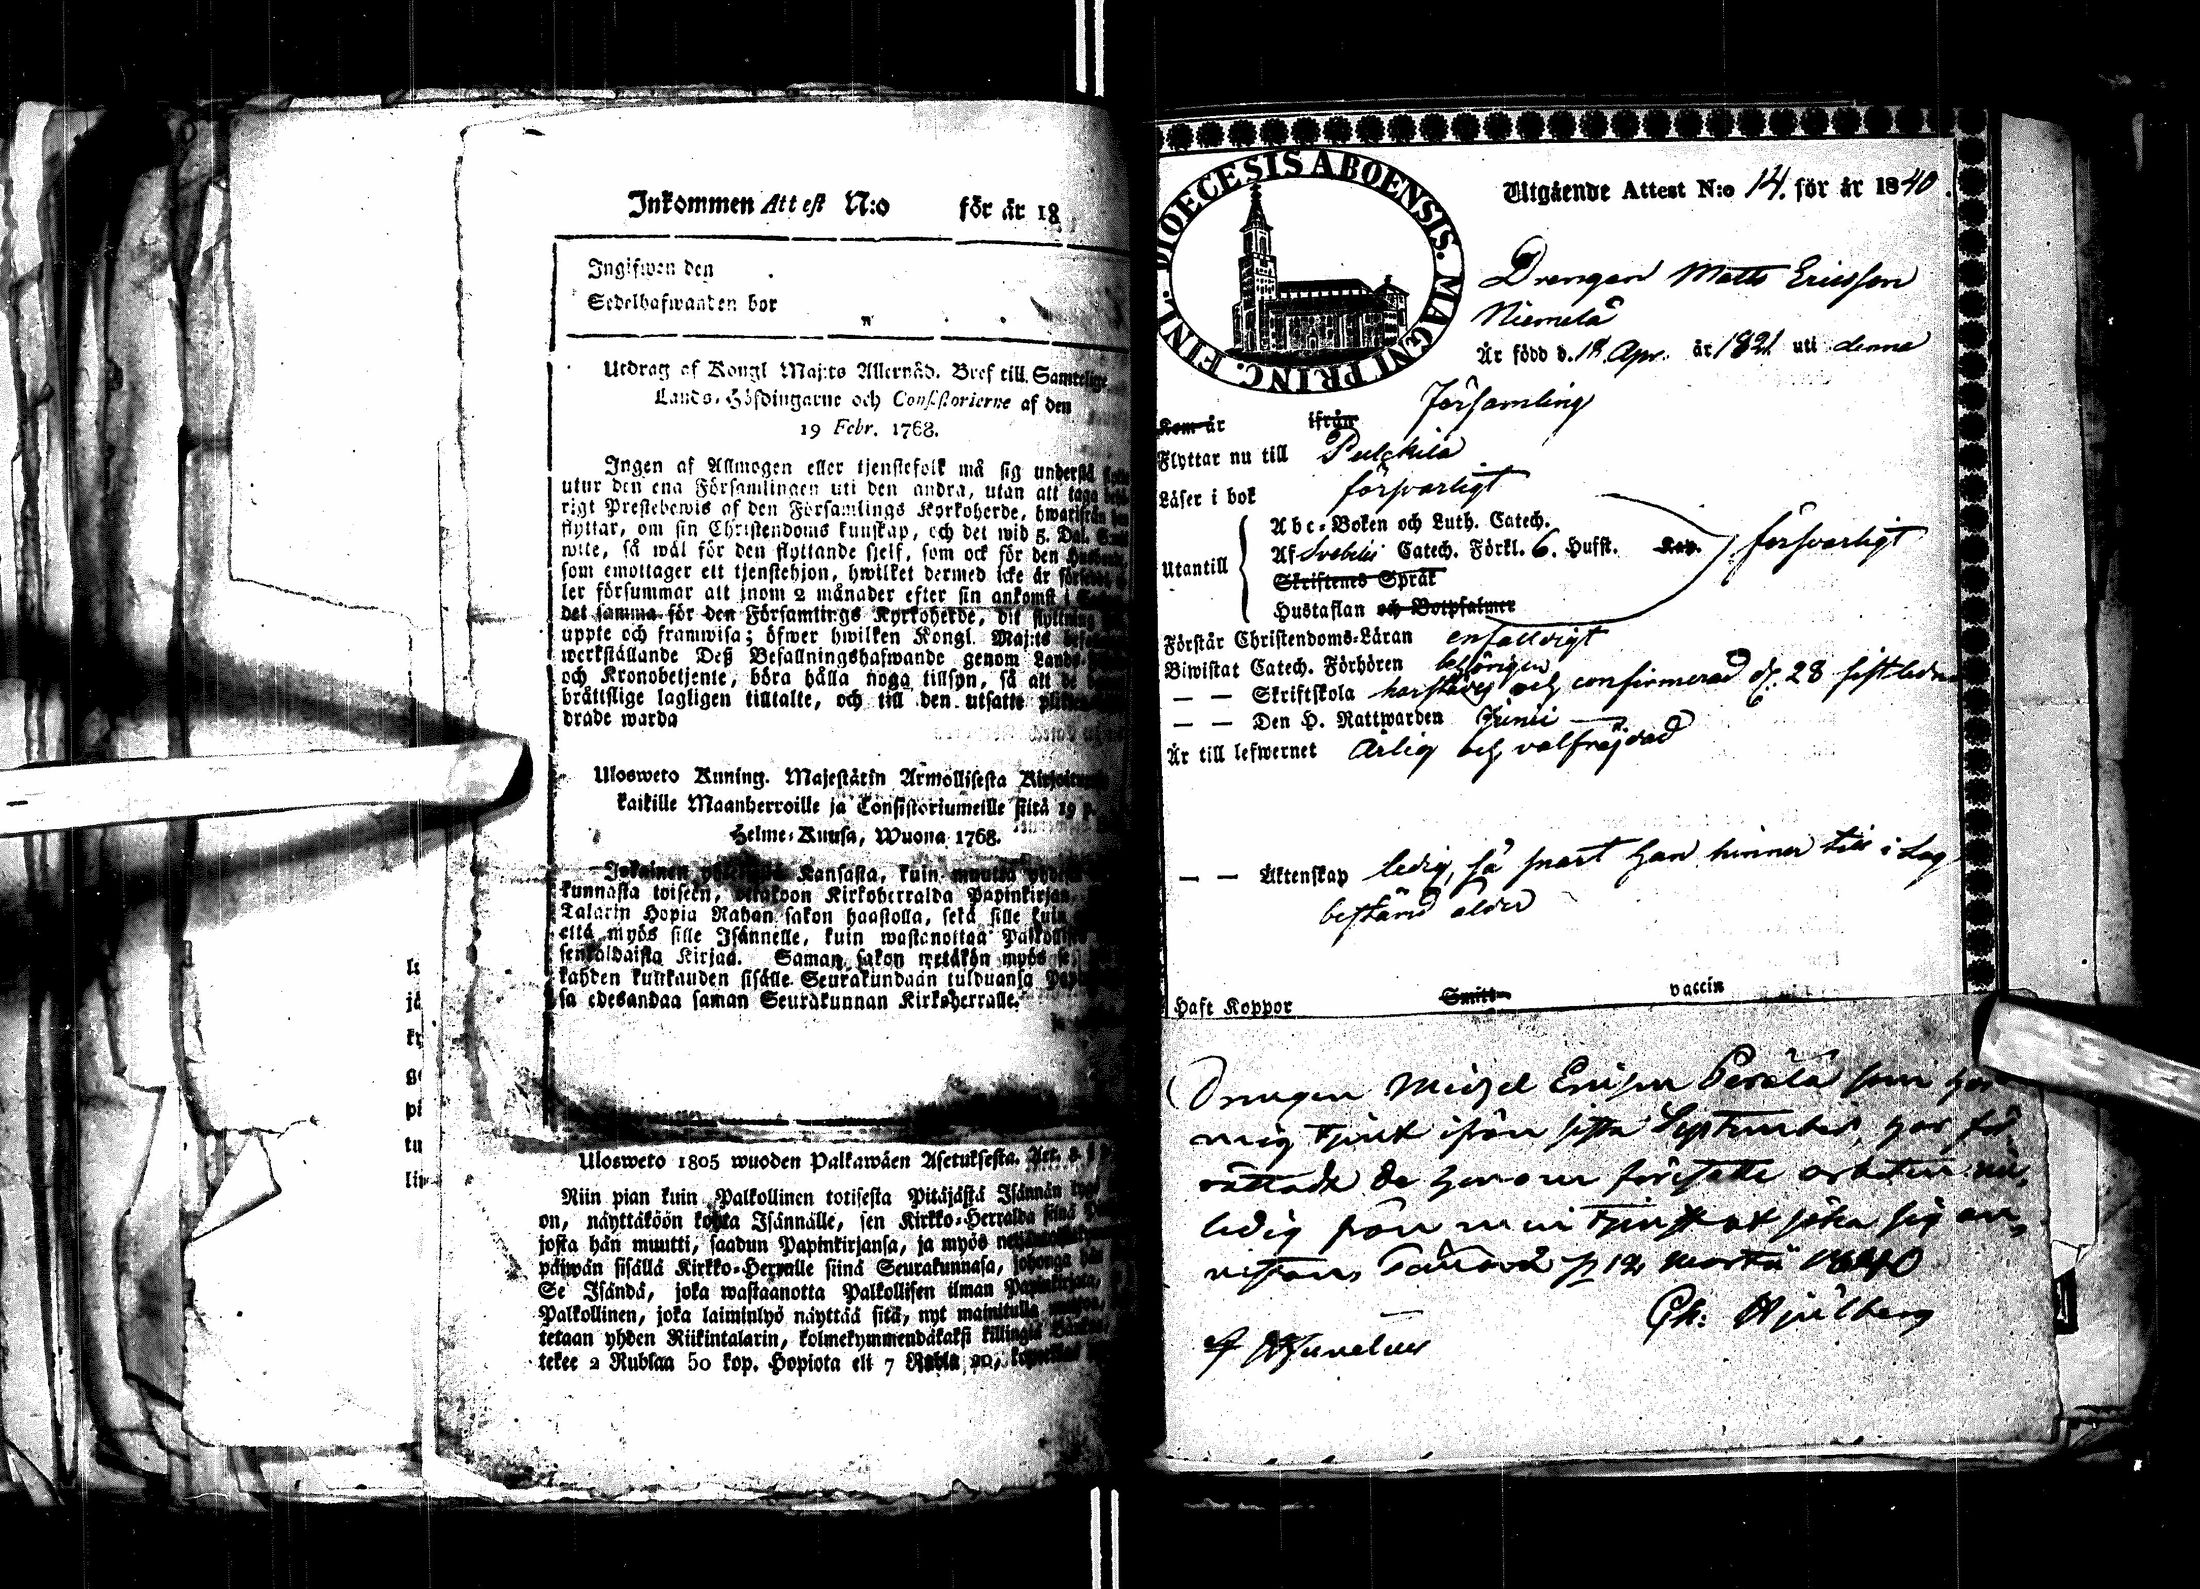 Inkommen Attest N:o för år 18
Ingifwen den
Sedelhafwanden bor
Utdrag af Kongl Maj:ts Allernåd. Bref till Samtelige
Lands-Höfdingarne och Consistorierne af den
19 Febr. 1768.
Ingen af Allmogen eller tjenstefolk må sig understå
utur den ena Församlingen uti den andra, utan att taga
rigt Prestebewis af den Församlings Kyrkoherde, hwarifrån
flyttar, om sin Christendoms kunskap, och det wid 5. Dal.
wite, så wäl för den flyttande sjelf, som ock för den
som emottager ett tjenstehjon, hwilket dermed icke är
ler försummar att inom 2 månader efter sin ankomst i
det samma för den Församlings Kyrkoherde, dit
uppte och framwisa; öfwer hwilken Kongl. Maj:ts
werkställande Deß Befallningshafwande genom Lands-
och Kronobetjente, böra hålla noga tillsyn, så att de
bråttslige lagligen tilltalte, och till den utsatte
drade warda
Ulosweto Kuning. Majestätin Armollisesta
kaikille Maanherroille ja Consistoriumeille siitä 19
Helme-Kuusa, Wuona 1768.
Jokainen Kansasta, kuin muutta
kunnasta toiseen, ottakoon Kirkoherralda Papinkirjan
Talarin Hopia Rahan sakon haastolla, sekä sille kuin
että myös sille Isännelle, kuin wastanottaa
senkaldaista Kirjaa. Saman sakon wetäkön myös se,
kahden kuukauden sisälle Seurakundaan tulduansa
sa edesandaa saman Seurakunnan Kirkoherralle.
Ulosweto 1805 wuoden Palkawäen Asetuksesta. Art.
Niin pian kuin Palkollinen toisesta Pitäjästä Isännän
on, näyttäköön kohta Isännälle, sen Kirkko-Herralda siinä
josta hän muutti, saadun Papinkirjansa, ja myös
päiwän sisällä Kirkko-Herralle siinä Seurakunnasa, johonga
Se Isändä, joka wastaanotta Palkollisen ilman Papinkirjata,
Palkollinen, joka laiminlyö näyttää sitä, nyt mainitulla
tetaan yhden Riikintalarin, kolmekymmendäkaksi killingiä
tekee 2 Rublaa 50 kop. Hopiota eli 7 Rubla 20,
DIOECESIS ABOENSIS. MAGNI PRINC. FINL.
Utgående Attest N:o 14. för år 1840.
Drengen Matts Ericsson
Niemelä
Är född d. 18 Apr. år 1821 uti denna
Församling
Kom år ifrån
Flyttar nu till Pulckila
Läser i bok försvarligt
Abc-Boken och Luth. Catech.
Utantill Af Svebilii Catech. Förkl. 6. Hufst. Kap. försvarligt
Skriftenes Språk
Hustaflan och Botpsalmer
Förstår Christendoms-Läran enfalldigt
Biwistat Catech. Förhören behörigen
— — Skriftskola och confirmerad d. 28 sistledne
— — Den H. Nattwarden Junii
Är till lefwernet ärlig och välfräjdad
— — Äktenskap ledig, så snart han hinner till i Lag
bestämd ålder
Haft Koppor Smitt- vaccin
Drengen Michel Ericson Perälä som hos
mig tjent ifrån sista September, har för-
rättade de honom föresatte arbeten
ledig från min tjenst at söka sig
12 Martii 1840